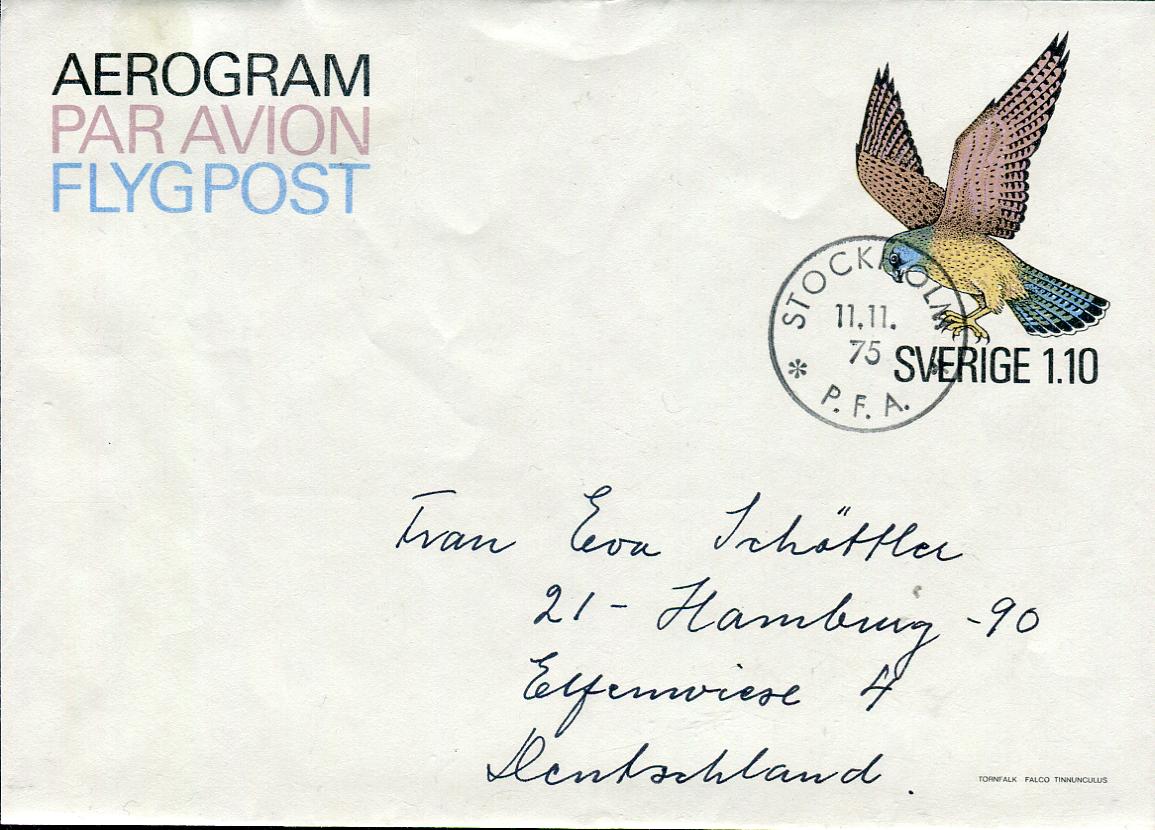 AEROGRAM
PAR AVION
FLYGPOST
STOCKHOLM
11.11.
75
* P. F. A. *
SVERIGE 1.10
Frau Eva Schöttler
21 - Hamburg - 90
Elfenwiese 4
Deutschland.
TORNFALK FALCO TINNUNCULUS